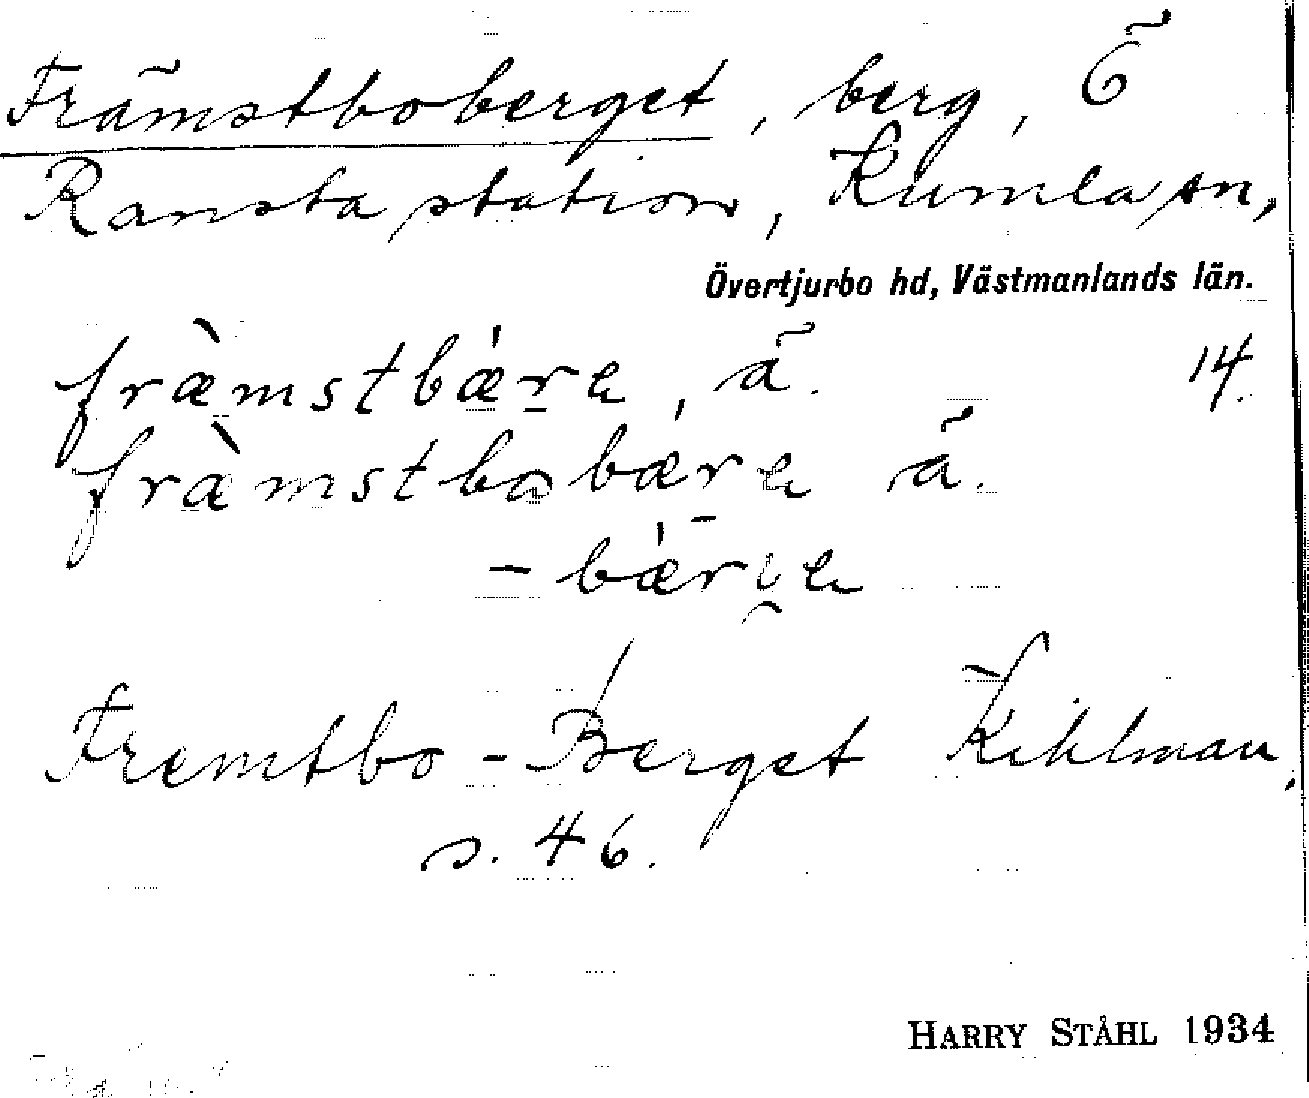 Främstboberget, berg, Ö
Ransta station, Kumla sn,
Övertjurbo hd, Västmanlands län.
fræ̀mstbæ̀re, ä. 14.
fræ̀mstbobære ä.
- bærje
Fremtbo - Berget Kihlman,
s. 46.
HARRY STÅHL 1934